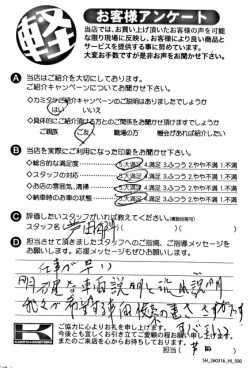 軽
お客様アンケート
当店では、お買い上げ頂いたお客様の声を可能
な限り現場に反映し、お客様により良い商品と
サービスを提供する事に努めています。
大変お手数ですが是非お声をお聞かせ下さい。
A 当店はご紹介を大切にしております。
ご紹介キャンペーンについてお聞かせ下さい。
◇カミタケご紹介キャンペーンのご説明はありましたでしょうか
はい いいえ
◇具体的にご紹介頂ける方とのご関係をお聞かせ頂けますでしょうか
ご親族 ご友人 職場の方 機会があれば紹介したい
B 当店を実際にご利用になった印象をお聞かせ下さい。
◇総合的な満足度 5.大満足 4.満足 3.ふつう 2.やや不満 1.不満
◇スタッフの対応 5.大満足 4.満足 3.ふつう 2.やや不満 1.不満
◇お店の雰囲気、清掃 5.大満足 4.満足 3.ふつう 2.やや不満 1.不満
◇納車時のお車の状態 5.大満足 4.満足 3.ふつう 2.やや不満 1.不満
C 評価したいスタッフがいれば教えてください。(複数回答可)
スタッフ名( )( )
D 担当させて頂きましたスタッフへのご指摘、ご指導メッセージを
お願いします。応援メッセージもぜひお願いします。
仕事が早い
明な車両説明と
ご協力に心よりお礼を申し上げます。
今後とも宜しくお引き立てご愛顧の程お願い申し上げます。
またのご来店を心からお待ちしております。
担当( )
SH_260316_HI_500